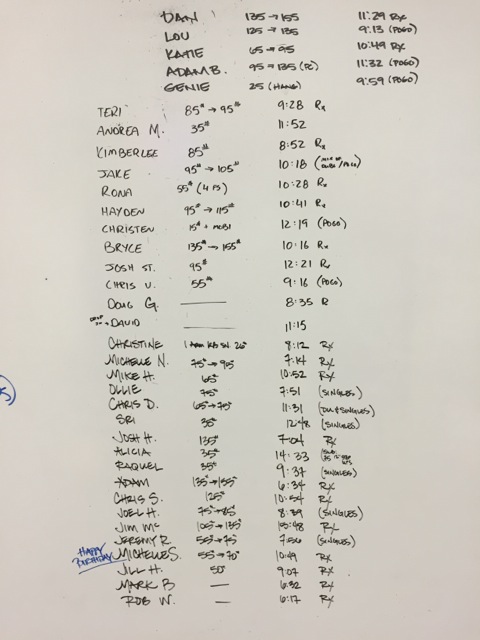 DAN 135→155 11:29 Rx
LOU 135→135 9:13 (POGO)
KATIE 65→95 10:49 Rx
ADAM B. 95→135 (PC) 11:32 (POGO)
GENIE 25 (HANG) 9:59 (POGO)
TERI 85#→95# 9:28 Rx
ANDREA M. 35# 11:52
KIMBERLEE 85# 8:52 Rx
JAKE 95#→105# 10:18
RONA 55# (4 FS) 10:28 Rx
HAYDEN 95#→115# 10:41 Rx
CHRISTEN 15# + MOBI 12:19 (POGO)
BRYCE 135#→155# 10:16 Rx
JOSH ST. 95# 12:21 Rx
CHRIS V. 55# 9:16 (POGO)
DOUG G. — 8:35 R
DAVID — 11:15
CHRISTINE 1 ARM KB SN. 26# 8:12 Rx
MICHELLE N. 75#→95# 7:14 Rx
MIKE H. 65# 10:52 Rx
OLLIE 75# 7:51 (SINGLES)
CHRIS D. 65#→75# 11:31 (DU & SINGLES)
SRI 35# 12:48 (SINGLES)
JOSH H. 135# 7:04 Rx
ALICIA 35# 14:33
RAQUEL 35# 9:37 (SINGLES)
ADAM 135#→155# 6:34 Rx
CHRIS S. 125# 10:54 Rx
JOEL H. 75#→85# 8:39 (SINGLES)
JIM Mc 105#→135# 13:48 Rx
JEREMY R. 55#→75# 7:56 (SINGLES)
HAPPY BIRTHDAY MICHELLE S. 55#→70# 10:49 Rx
JILL H. 50# 9:07 Rx
MARK B — 6:32 Rx
ROB W. — 6:17 Rx